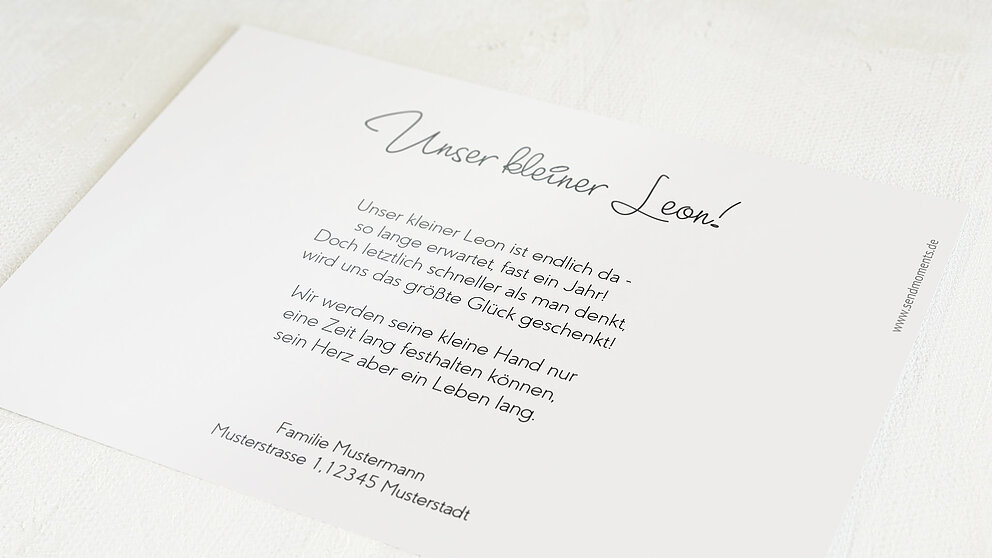 Unser kleiner Leon!
Unser kleiner Leon ist endlich da -
so lange erwartet, fast ein Jahr!
Doch letztlich schneller als man denkt,
wird uns das größte Glück geschenkt!
Wir werden seine kleine Hand nur
eine Zeit lang festhalten können,
sein Herz aber ein Leben lang.
Familie Mustermann
Musterstrasse 1,12345 Musterstadt
www.sendmoments.de